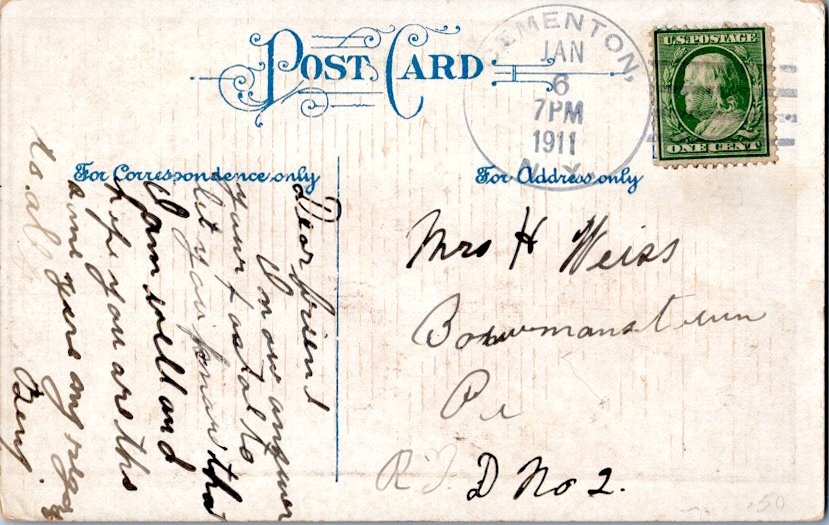 POST CARD
CEMENTON,
JAN
6
7PM
1911
N.Y.
U.S. POSTAGE
ONE CENT
For Correspondence only
For Address only
Dear friend
I now answer
your postal to
let you know that
I am well and
hope you are the
same give my
to all
Benj.
Mrs H Weiss
Bowmanstown
Pa
R.F. D No 2.
.50